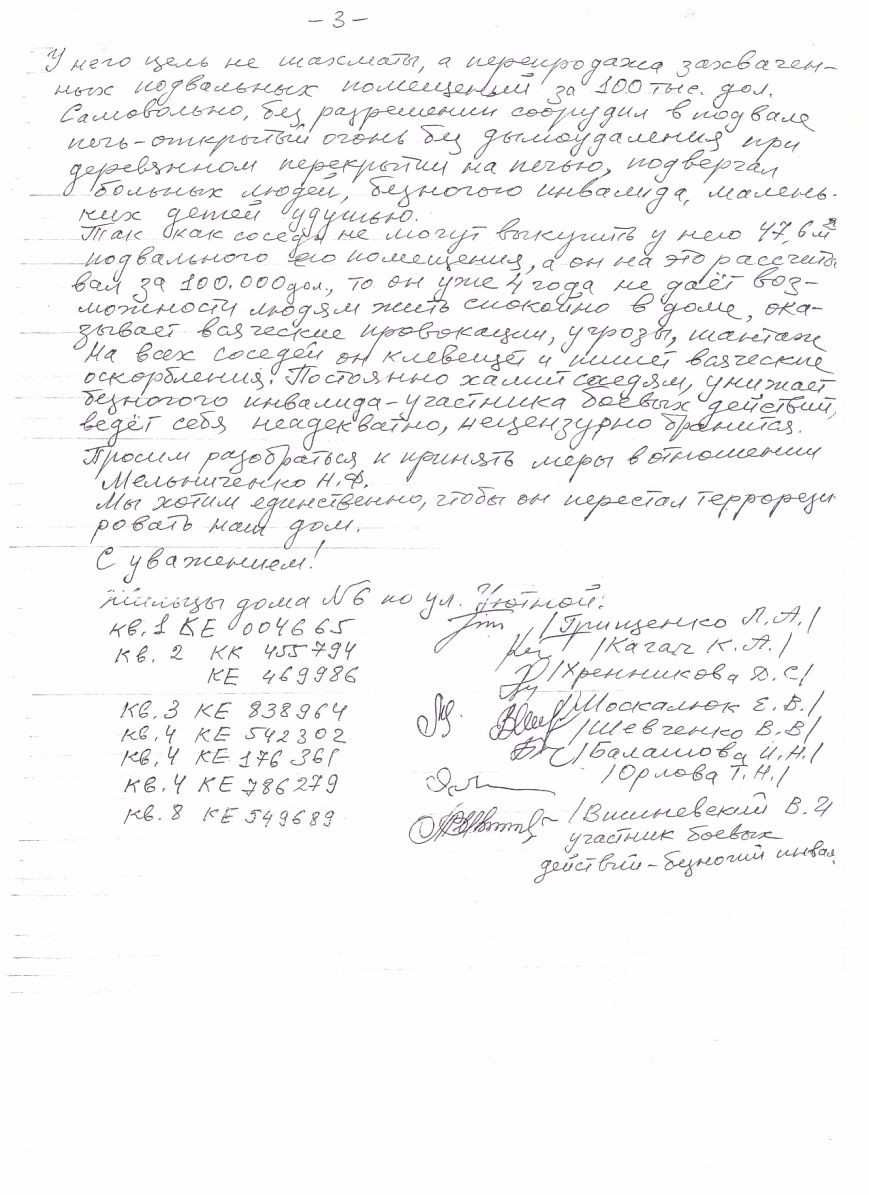 - 3 -
У него цель не шахматы, а перепродажа захвачен-
ных подвальных помещений за 100 тыс. дол.
Самовольно, без разрешении соорудил в подвале
печь-открытый огонь без дымоудаления при
деревянном перекрытии на печью, подвергал
больных людей, безногого инвалида, малень-
ких детей удушью.
Так как соседи не могут выкупить у него 47,6 м²
подвального его помещения, а он на это рассчиты
вал за 100.000 дол., то он уже 4 года не даёт воз-
можности людям жить спокойно в доме, ока-
зывает всяческие провокации, угрозы, шантаж
На всех соседей он клевещет и пишет всяческие
оскорбления. Постоянно хамит соседям, унижает
безногого инвалида-участника боевых действий,
ведёт себя неадекватно, нецензурно бранится.
Просим разобраться и принять меры в отношении
Мельниченко Н.Ф.
Мы хотим единственно, чтобы он перестал террореzи
ровать наш дом.
С уважением!
Жильцы дома №6 по ул. Уютной:
кв. 1 КЕ 004665 /Грищенко Л.А./
кв. 2 КК 455794 /Каган К.А./
КЕ 469986 /Хренникова Д.С/
кв. 3 КЕ 838964 /Москалюк Е.В./
кв. 4 КЕ 542302 /Шевченко В.В/
кв. 4 КЕ 176361 /Балашова И.Н./
кв. 4 КЕ 786279 /Орлова Т.Н./
кв. 8 КЕ 549689 /Вишневский В.И
участник боевых
действий-безногий инвал